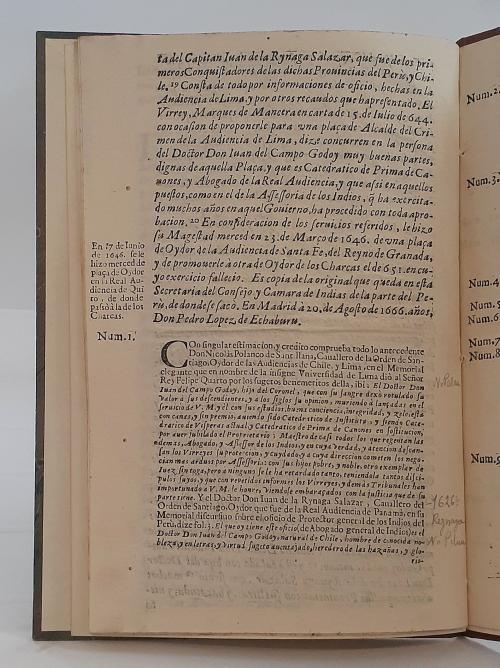 ta del Capitan Iuan de la Rynaga Salazar, que fue de los pri-
meros Conquistadores de las dichas Prouincias del Perù, y Chi-
le. 19 Consta de todo por informaciones de oficio, hechas en la
Audiencia de Lima, y por otros recaudos que ha presentado. El
Virrey, Marques de Mancera en carta de 15. de Iulio de 644.
con ocasion de proponerle para vna plaça de Alcalde del Cri-
men de la Audiencia de Lima, dize concurren en la persona
del Doctor Don Iuan del Campo Godoy muy buenas partes,
dignas de aquella Plaça, y que es Catedratico de Prima de Ca-
nones, y Abogado de la Real Audiencia, y que assi en aquellos
puestos, como en el de la Assessoria de los Indios, q̃ ha exercita-
do muchos años en aquel Gouierno, ha procedido con toda apro-
bacion. 20 En consideracion de los seruicios referidos, le hizo
su Magestad merced en 23. de Março de 1646. de vna plaça
de Oydor de la Audiencia de Santa Fe, del Reyno de Granada,
y de promouerle à otra de Oydor de los Charcas el de 651. en cu-
yo exercicio fallesio. Es copia de la original que queda en esta
Secretaria del Consejo y Camara de Indias de la parte del Pe-
rù, de donde se sacò. En Madrid à 20. de Agosto de 1666. años,
Don Pedro Lopez de Echaburu.
En 17 de Iunio
de 1646. se le
hizo merced de
plaça de Oydor
en la Real Au-
diencia de Qui
to, de donde
passò à la de los
Charcas.
Num. 1.
COn singular estimacion, y credito comprueba todo lo antecedente
Don Nicolàs Polanco de Santillana, Cauallero de la Orden de San-
tiago, Oydor de las Audiencias de Chile, y Lima, en el Memorial
elegante que en nombre de la insigne Vniversidad de Lima diò al Señor
Rey Felipe Quarto por los sugetos benemeritos della, ibi. El Doctor Don
Iuan del Campo Godoy, hijo del Coronel, que con su sangre dexò rotulado su
valor à sus descendientes, y a los siglos su opinion, muriendo à lançadas en el
seruicio de V. M. y el con sus estudios, buena conciencia, integridad, y zelo, està
con canas, y sin premio, auiendo sido Catedratico de Instituta, y siendo Cate-
dratico de Visperas actual y Catedratico de Prima de Canones en sostitucion,
por auer jubilado el Propietario; Maestro de casi todos los que regentan las
demàs, Abogado, y Assessor de los Indios, en cuya verdad, y atencion descan-
san los Virreyes su proteccion, y cuydado, y a cuya direccion cometen los nego-
cios mas arduos por Assessoria: con sus hijos pobre, y noble, otro exemplar de
parte sirue. Y el Doctor Don Iuan de la Rynaga Salazar, Cauallero del
Orden de Santiago, Oydor que fue de la Real Audiencia de Panamà, en su
Memorial discursiuo sobre el oficio de Protector general de los Indios del
Perù, dize fol. 3. El que oy tiene este oficio (de Abogado general de Indios) es el
Doctor Don Iuan del Campo Godoy, natural de Chile, hombre de conocida no-
bleza, y en letras, y virtud sugeto auentajado, heredero de las hazañas, y glo-
rio-
Num. 2.
Num. 3.
Num. 4
Num. 5
Num. 6
Num. 7
Num. 8